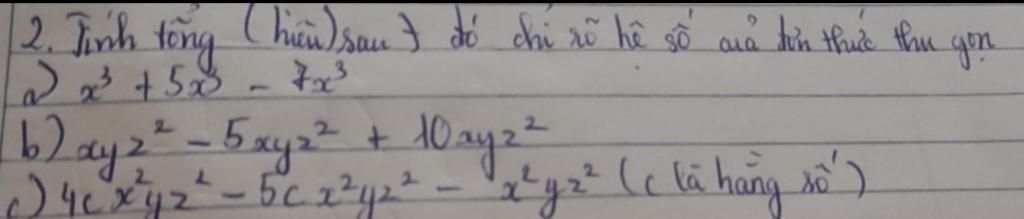 2. Tính tổng (hiệu) sau + đó chỉ rõ hệ số của đơn thức thu gọn
a) x³ + 5x³ - 7x³
b) xyz² - 5xyz² + 10xyz²
c) 4cx²yz² - 5cx²yz² - x²yz² (c là hằng số)